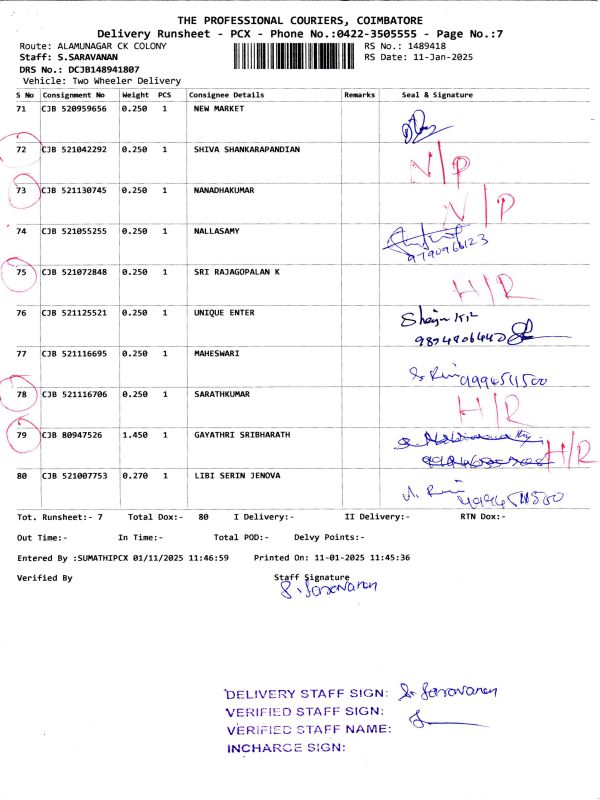 THE PROFESSIONAL COURIERS, COIMBATORE
Delivery Runsheet - PCX - Phone No.:0422-3505555 - Page No.:7
Route: ALAMUNAGAR CK COLONY RS No.: 1489418
Staff: S.SARAVANAN RS Date: 11-Jan-2025
DRS No.: DCJB148941807
Vehicle: Two Wheeler Delivery
S No Consignment No Weight PCS Consignee Details Remarks Seal & Signature
71 CJB 520959656 0.250 1 NEW MARKET
72 CJB 521042292 0.250 1 SHIVA SHANKARAPANDIAN N/P
73 CJB 521130745 0.250 1 NANADHAKUMAR N/P
74 CJB 521055255 0.250 1 NALLASAMY
9790966123
75 CJB 521072848 0.250 1 SRI RAJAGOPALAN K H/R
76 CJB 521125521 0.250 1 UNIQUE ENTER
77 CJB 521116695 0.250 1 MAHESWARI
9994511500
78 CJB 521116706 0.250 1 SARATHKUMAR H/R
79 CJB 80947526 1.450 1 GAYATHRI SRIBHARATH H/R
80 CJB 521007753 0.270 1 LIBI SERIN JENOVA
9994511500
Tot. Runsheet:- 7 Total Dox:- 80 I Delivery:- II Delivery:- RTN Dox:-
Out Time:- In Time:- Total POD:- Delvy Points:-
Entered By :SUMATHIPCX 01/11/2025 11:46:59 Printed On: 11-01-2025 11:45:36
Verified By Staff Signature
S. Saravanan
DELIVERY STAFF SIGN: S. Saravanan
VERIFIED STAFF SIGN:
VERIFIED STAFF NAME:
INCHARGE SIGN: